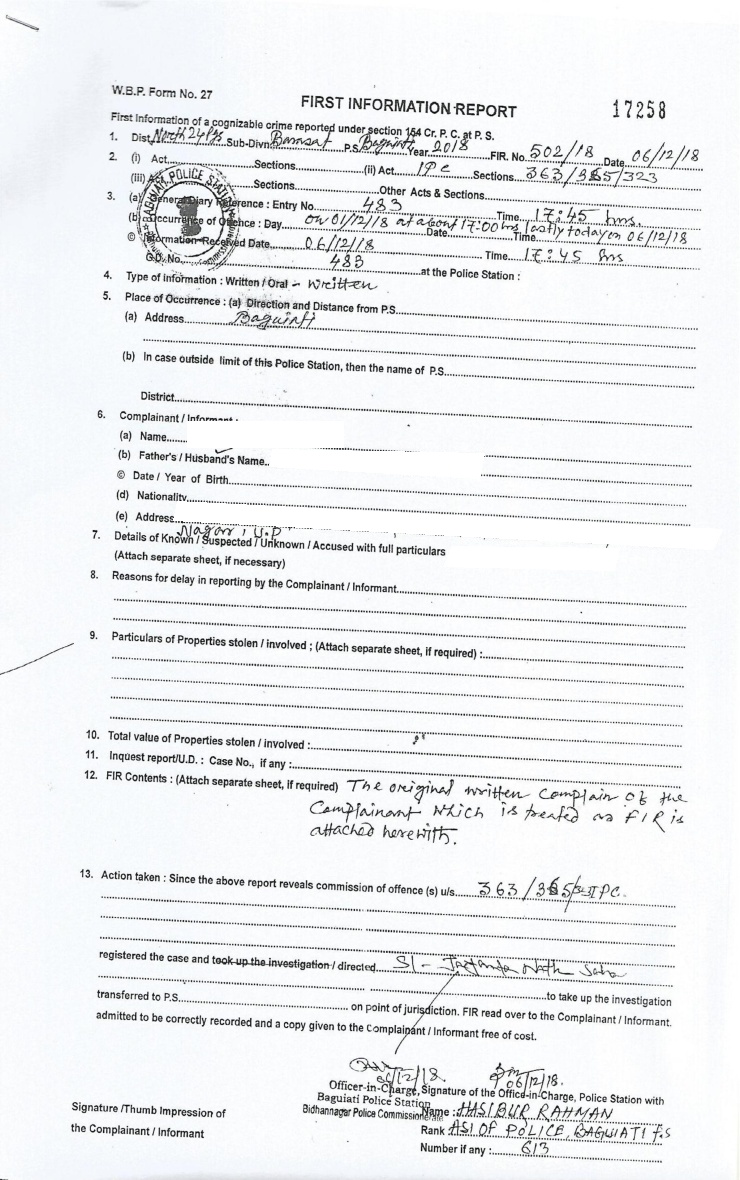 W.B.P. Form No. 27
FIRST INFORMATION REPORT
17258
First Information of a cognizable crime reported under section 154 Cr. P. C. at P. S.
1. Dist. North 24 Pgs Sub-Divn. Barasat P.S. Baguiati Year 2018 FIR. No. 502/18 Date 06/12/18
2. (i) Act Sections (ii) Act IPC Sections 363/365/323
(iii) Sections Other Acts & Sections
3. (a) General Diary Reference : Entry No. 483 Time 17:45 hrs.
(b) Occurrence of Offence : Day on 01/12/18 at about 17:00 hrs lastly today on 06/12/18 Date Time
© Information Received Date 06/12/18 Time 17:45 hrs
G.D. No. 483 at the Police Station :
4. Type of Information : Written / Oral - written
5. Place of Occurrence : (a) Direction and Distance from P.S.
(a) Address Baguiati
(b) In case outside limit of this Police Station, then the name of P.S.
District
6. Complainant / Informant :
(a) Name
(b) Father's / Husband's Name
© Date / Year of Birth
(d) Nationality
(e) Address
Nagar, U.P
7. Details of Known / Suspected / Unknown / Accused with full particulars
(Attach separate sheet, if necessary)
8. Reasons for delay in reporting by the Complainant / Informant
9. Particulars of Properties stolen / involved ; (Attach separate sheet, if required) :
10. Total value of Properties stolen / involved :
11. Inquest report/U.D. : Case No., if any :
12. FIR Contents : (Attach separate sheet, if required) The original written Complain of the
Complainant which is treated as FIR is
attached herewith.
13. Action taken : Since the above report reveals commission of offence (s) u/s 363/365/ IPC.
registered the case and took up the investigation / directed SI - Nath Saha
to take up the investigation
transferred to P.S. on point of jurisdiction. FIR read over to the Complainant / Informant.
admitted to be correctly recorded and a copy given to the Complainant / Informant free of cost.
06/12/18. 06/12/18.
Officer-in-Charge, Signature of the Office-in-Charge, Police Station with
Baguiati Police Station
Bidhannagar Police Commissionerate Name : HASIBUR RAHMAN
Signature /Thumb Impression of
the Complainant / Informant
Rank ASI OF POLICE, BAGUIATI P.S
Number if any : 613